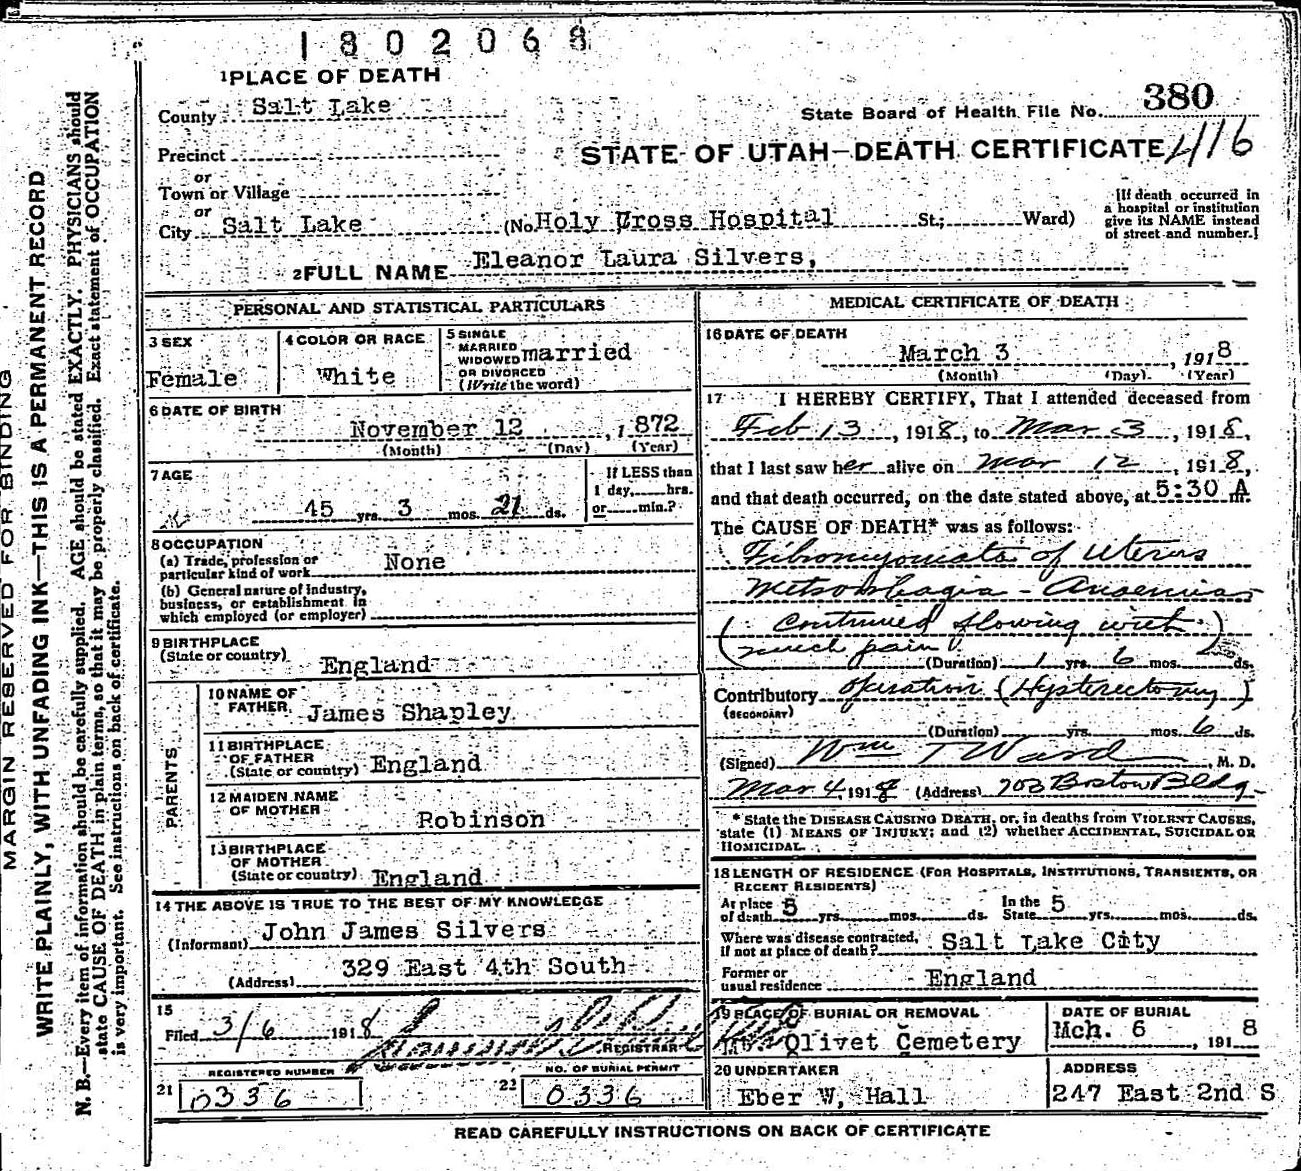 1802068
1 PLACE OF DEATH
County Salt Lake
State Board of Health File No. 380
Precinct
STATE OF UTAH—DEATH CERTIFICATE 416
or
Town or Village
or
City Salt Lake (No. Holy Cross Hospital St.; Ward)
[If death occurred in
a hospital or institution
give its NAME instead
of street and number.]
2 FULL NAME Eleanor Laura Silvers,
PERSONAL AND STATISTICAL PARTICULARS
3 SEX
Female
4 COLOR OR RACE
White
5 SINGLE
MARRIED
WIDOWED married
OR DIVORCED
(Write the word)
6 DATE OF BIRTH
November 12, 1872
(Month) (Day) (Year)
7 AGE
45 yrs. 3 mos. 21 ds.
If LESS than
1 day, hrs.
or min.?
8 OCCUPATION
(a) Trade, profession or
particular kind of work None
(b) General nature of industry,
business, or establishment in
which employed (or employer)
9 BIRTHPLACE
(State or country) England
PARENTS
10 NAME OF
FATHER James Shapley
11 BIRTHPLACE
OF FATHER
(State or country) England
12 MAIDEN NAME
OF MOTHER Robinson
13 BIRTHPLACE
OF MOTHER
(State or country) England
14 THE ABOVE IS TRUE TO THE BEST OF MY KNOWLEDGE
(Informant) John James Silvers
(Address) 329 East 4th South
15
Filed 3/6 1918
REGISTRAR
REGISTERED NUMBER
21 0336
NO. OF BURIAL PERMIT
22 0336
MEDICAL CERTIFICATE OF DEATH
16 DATE OF DEATH
March 3, 1918
(Month) (Day) (Year)
17 I HEREBY CERTIFY, That I attended deceased from
Feb 13, 1918, to Mar 3, 1918,
that I last saw her alive on Mar 12, 1918,
and that death occurred, on the date stated above, at 5:30 A m.
The CAUSE OF DEATH* was as follows:
Fibromyomata of Uterus
Metrorrhagia - Anaemia
(Continued flowing with
much pain) (Duration) 1 yrs. 6 mos. ds.
Contributory operation (Hysterectomy)
(SECONDARY)
(Duration) yrs. mos. 6 ds.
(Signed) Wm T Ward, M. D.
Mar 4 1918 (Address) 703 Boston Bldg.
* State the DISEASE CAUSING DEATH, or, in deaths from VIOLENT CAUSES,
state (1) MEANS OF INJURY; and (2) whether ACCIDENTAL, SUICIDAL OR
HOMICIDAL.
18 LENGTH OF RESIDENCE (FOR HOSPITALS, INSTITUTIONS, TRANSIENTS, OR
RECENT RESIDENTS)
At place of death 5 yrs. mos. ds. In the State 5 yrs. mos. ds.
Where was disease contracted,
if not at place of death? Salt Lake City
Former or
usual residence England
19 PLACE OF BURIAL OR REMOVAL
Mt. Olivet Cemetery
DATE OF BURIAL
Mch. 6, 1918
20 UNDERTAKER
Eber W. Hall
ADDRESS
247 East 2nd S
READ CAREFULLY INSTRUCTIONS ON BACK OF CERTIFICATE
MARGIN RESERVED FOR BINDING
WRITE PLAINLY, WITH UNFADING INK—THIS IS A PERMANENT RECORD
N. B.—Every item of information should be carefully supplied. AGE should be stated EXACTLY. PHYSICIANS should
state CAUSE OF DEATH in plain terms, so that it may be properly classified. Exact statement of OCCUPATION
is very important. See instructions on back of certificate.